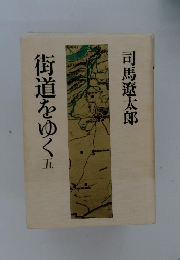 司馬遼太郎
街道をゆく 五